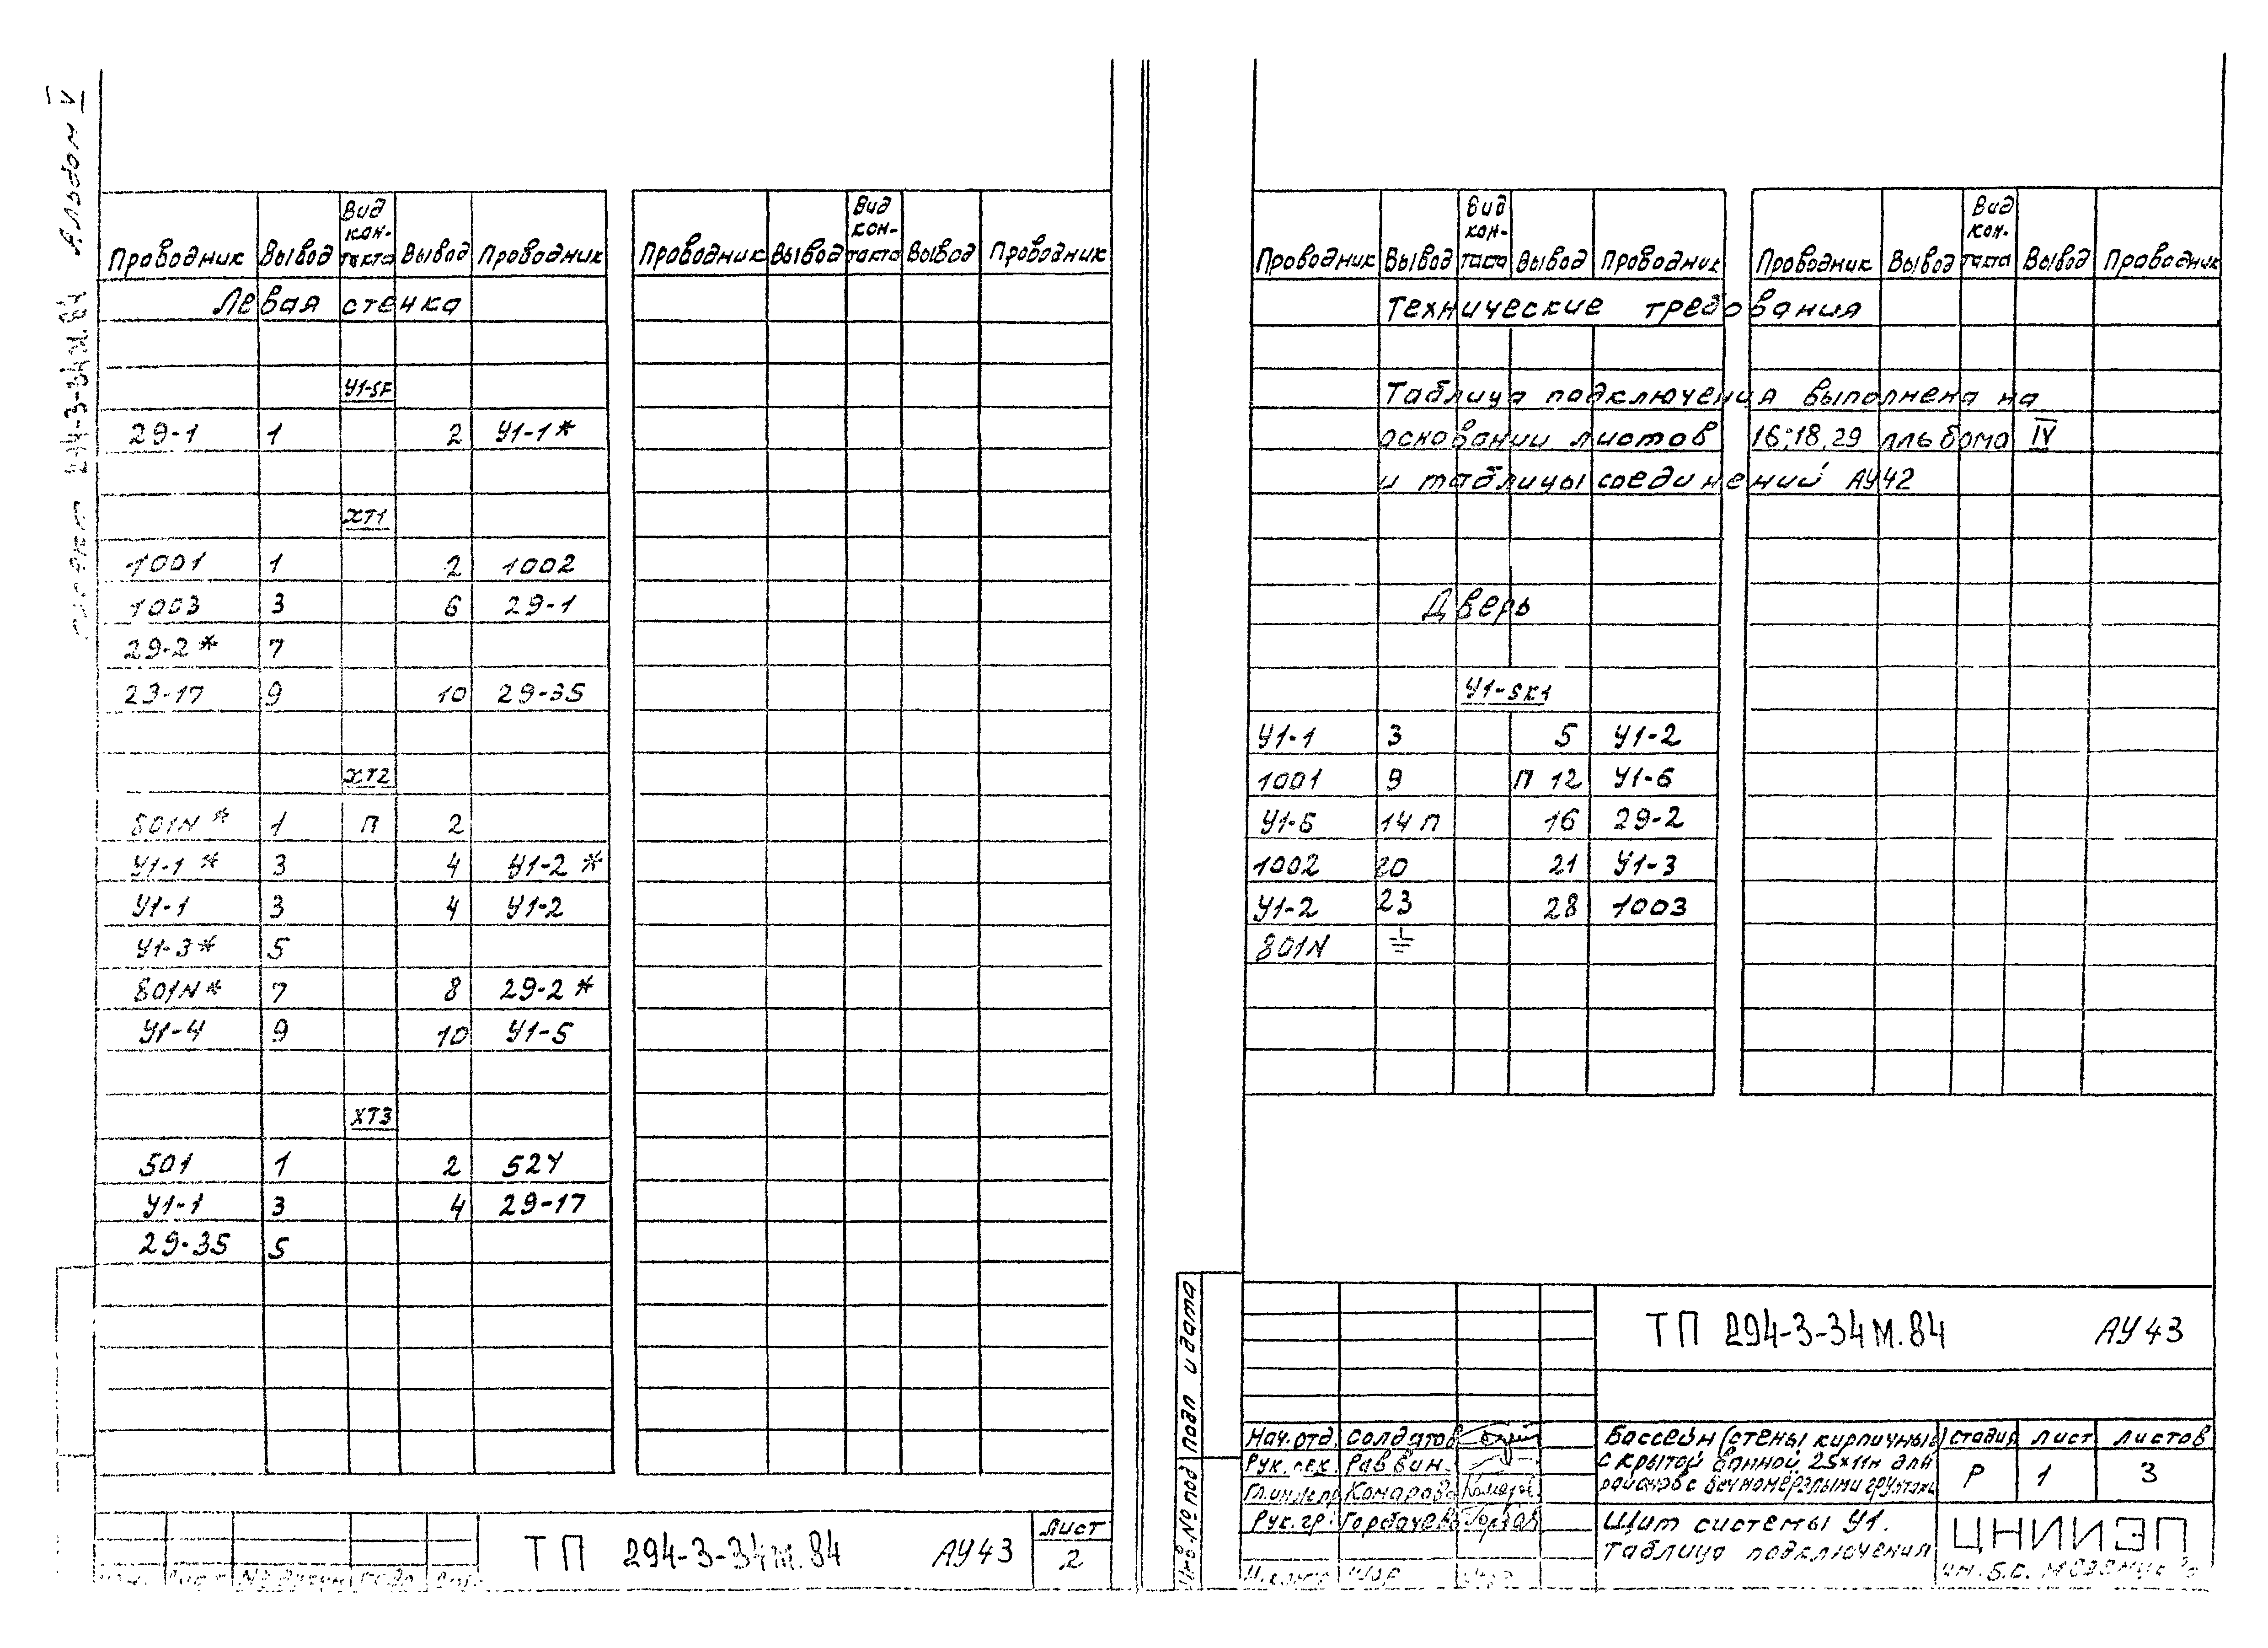 Альбом V
294-3-34М.84
Проводник Вывод Вид кон-такта Вывод Проводник
Проводник Вывод Вид кон-такта Вывод Проводник
Левая стенка
У1-SF
29-1 1 2 У1-1*
ХТ1
1001 1 2 1002
1003 3 6 29-1
29-2* 7
23-17 9 10 29-35
ХТ2
801N* 1 П 2
У1-1* 3 4 У1-2*
У1-1 3 4 У1-2
У1-3* 5
801N* 7 8 29-2*
У1-4 9 10 У1-5
ХТ3
501 1 2 524
У1-1 3 4 29-17
29-35 5
ТП 294-3-34М.84 АУ43
Лист
2
Проводник Вывод Вид кон-такта Вывод Проводник
Проводник Вывод Вид кон-такта Вывод Проводник
Технические требования
Таблица подключения выполнена на
основании листов 16;18,29 альбома IV
и таблицы соединений АУ42
Дверь
У1-SK1
У1-1 3 5 У1-2
1001 9 П 12 У1-6
У1-6 14 П 16 29-2
1002 20 21 У1-3
У1-2 23 28 1003
801N ⏚
Инв.№ под подп и дата
ТП 294-3-34М.84 АУ43
Нач.отд. Солдатов
Рук.сек. Раввин
Гл.инж.пр Комарова
Рук.гр. Горбачева
Н.контр
Бассейн (стены кирпичные)
с крытой ванной 25×11м для
районов с вечномерзлыми грунтами
стадия лист листов
Р 1 3
Щит системы У1.
Таблица подключения
ЦНИИЭП
им. Б.С. Мезенцева